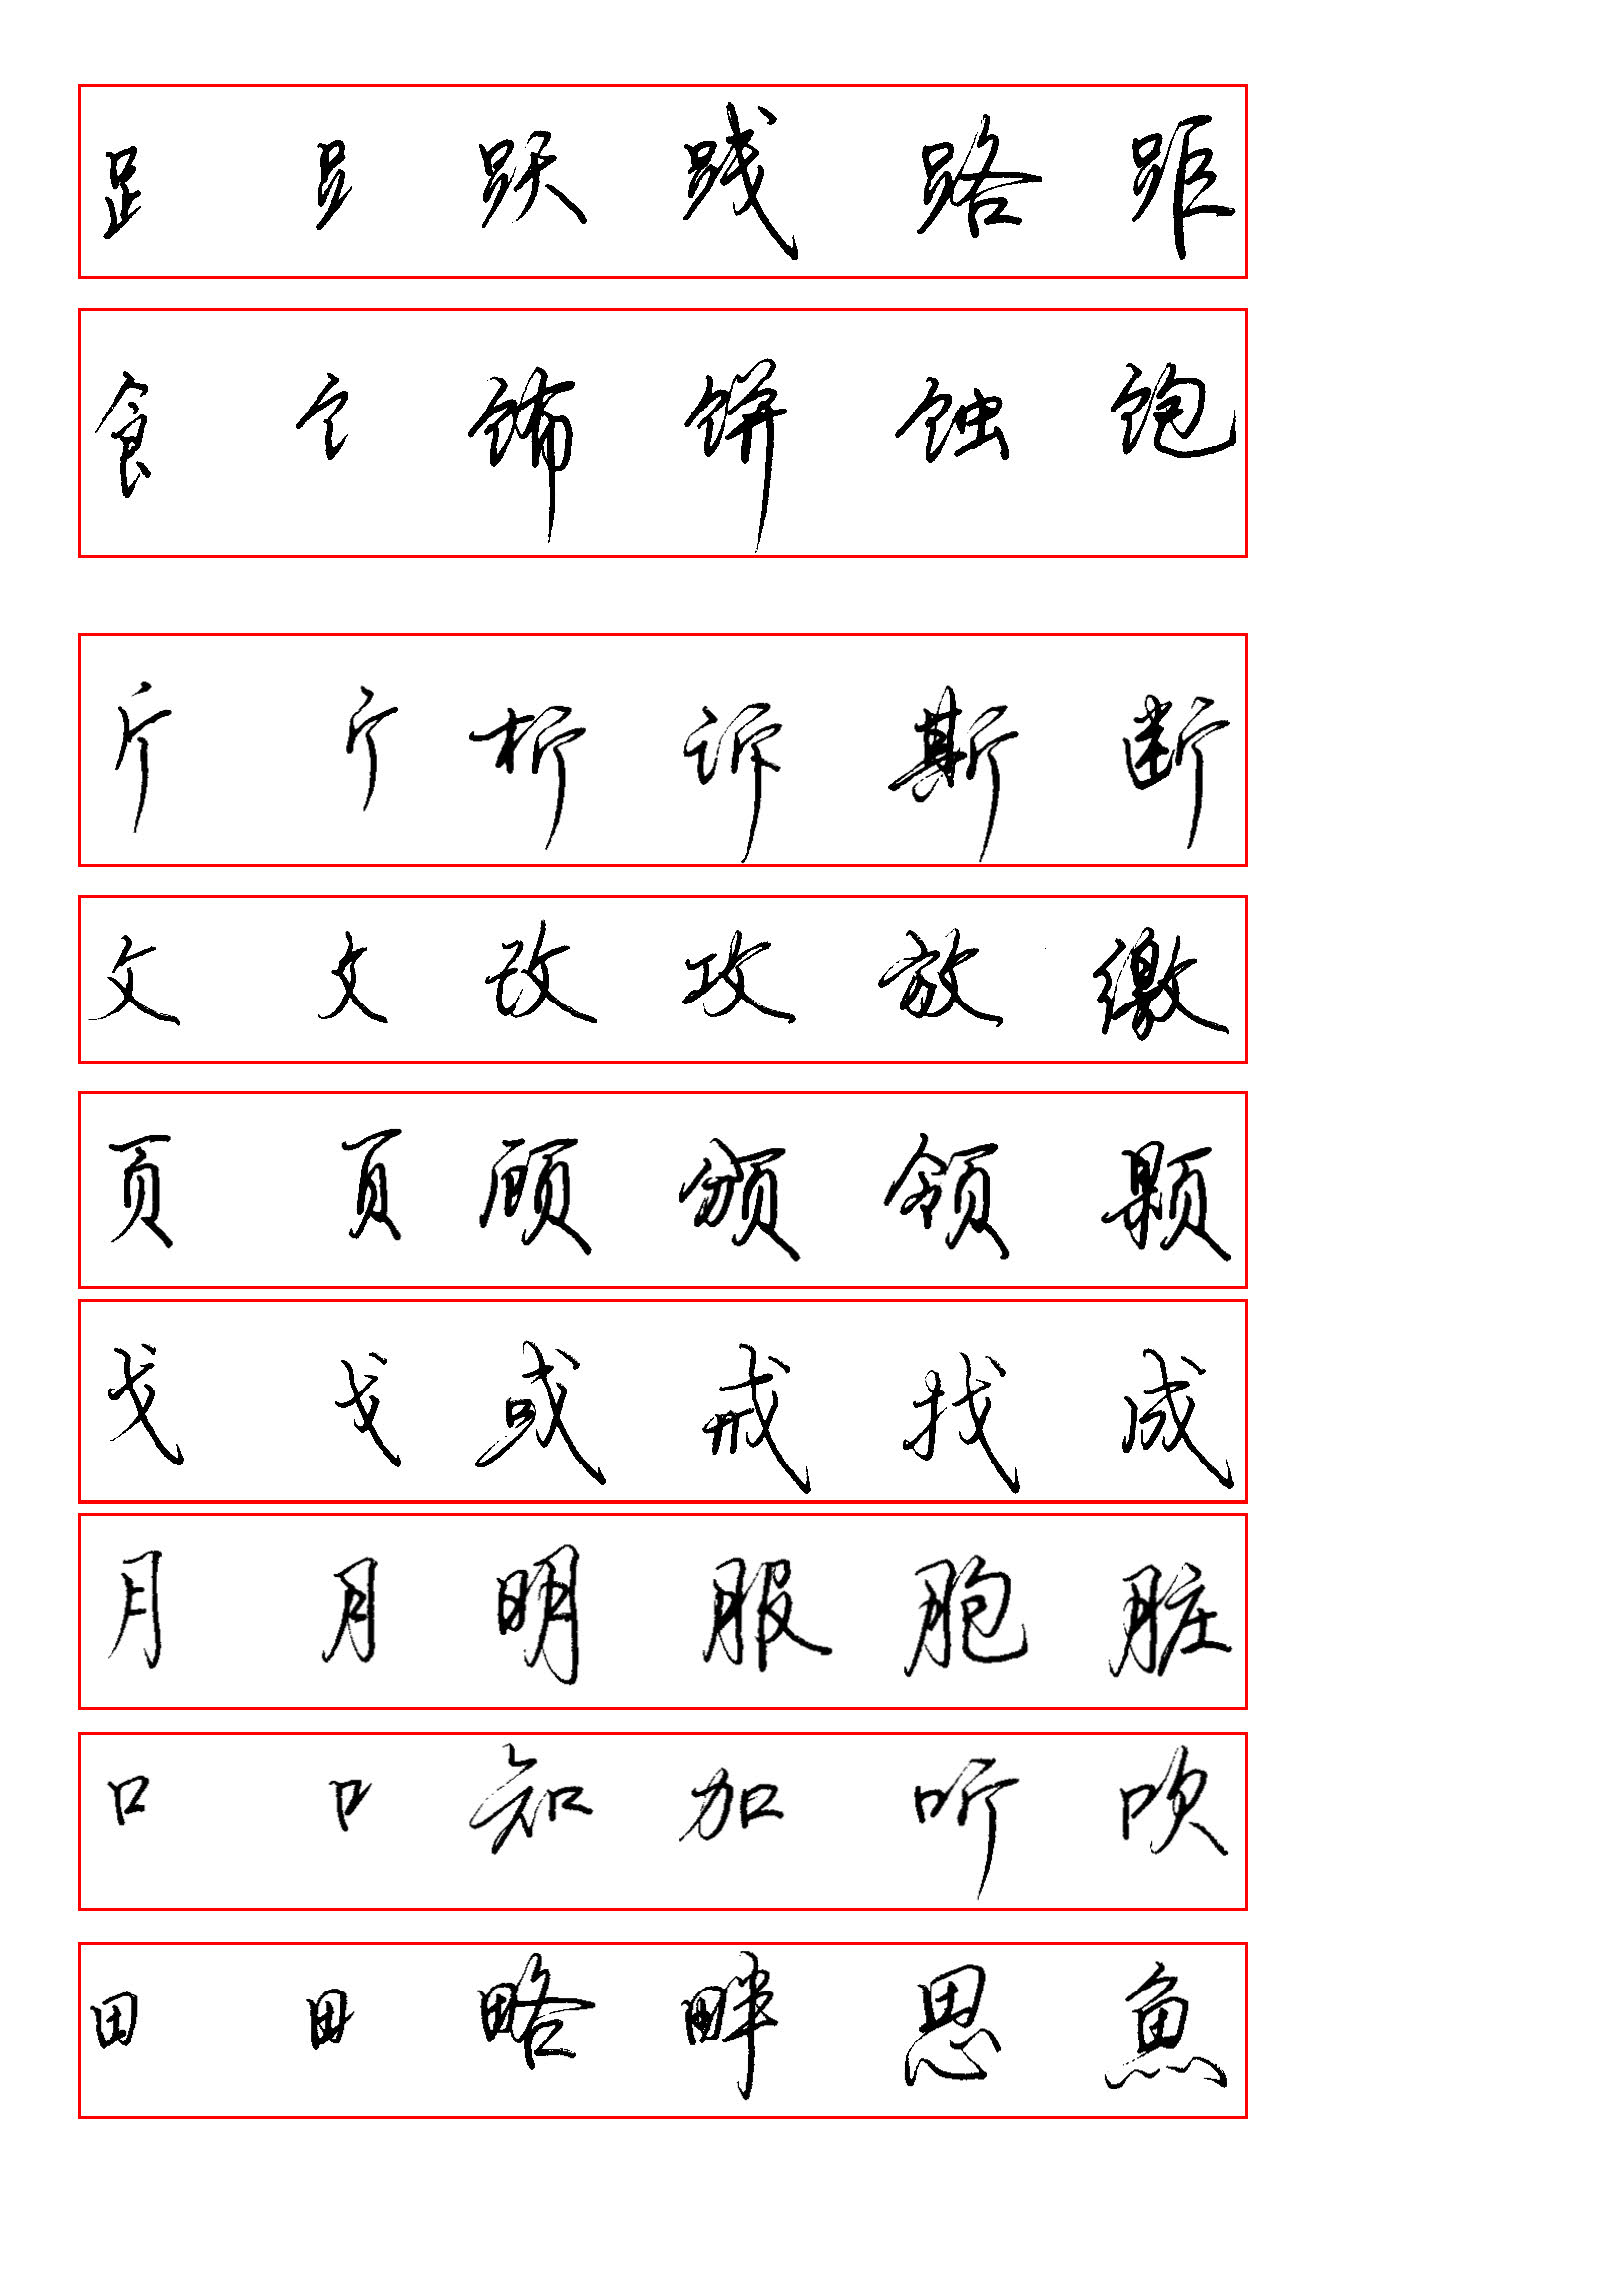 足 𧾷 跃 践 路 距
食 饣 饰 饼 蚀 饱
斤 斤 析 诉 斯 断
文 攵 改 攻 放 缴
页 页 顾 颁 领 颗
戈 戈 或 戒 找 成
月 月 明 服 胞 脏
口 口 知 加 听 吹
田 田 略 畔 思 魚